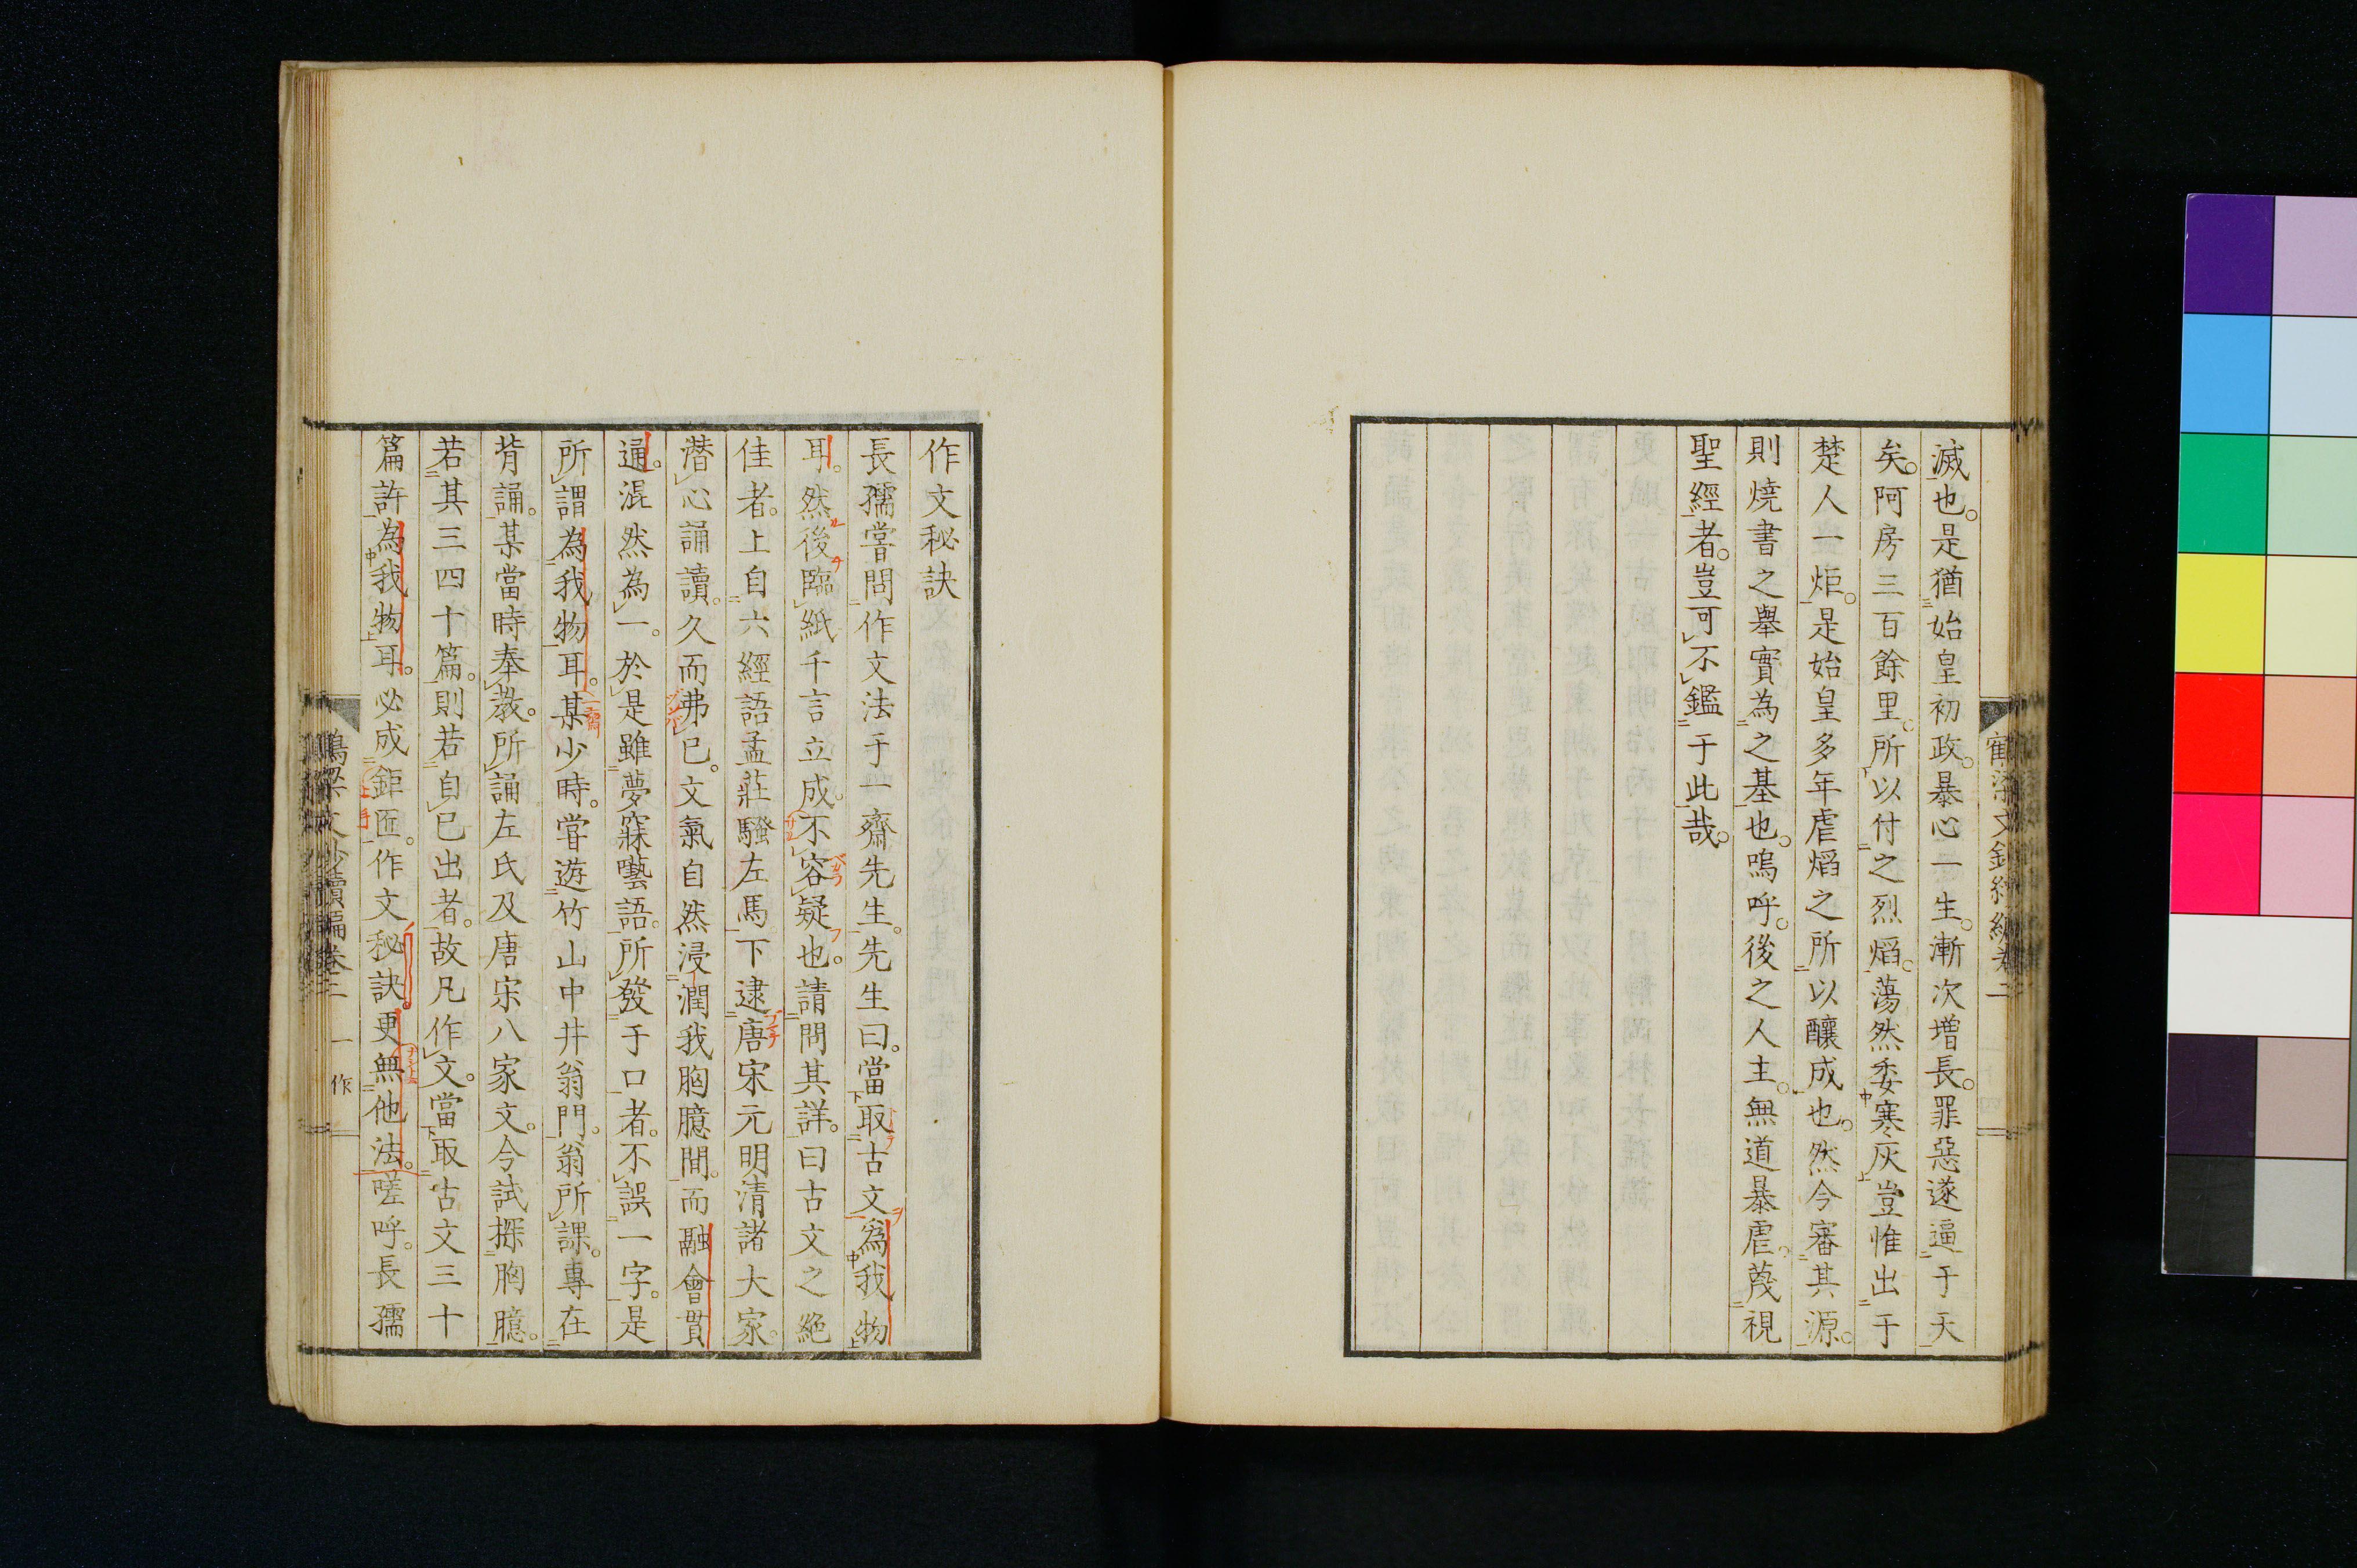 滅也。是猶始皇初政。暴心一生。漸次增長。罪惡遂逼于天
矣。阿房三百餘里。所以付之烈焰。蕩然委寒灰。豈惟出于
楚人一炬。是始皇多年虐焰之所以釀成也。然今審其源。
則燒書之舉實為之基也。嗚呼。後之人主。無道暴虐。蔑視
聖經者。豈可不鑑于此哉。
作文秘訣
長孺嘗問作文法于一齋先生。先生曰。當取古文為我物
耳。然後臨紙千言立成。不容疑也。請問其詳。曰古文之絕
佳者。上自六經語孟莊騷左馬下逮唐宋元明清諸大家。
潛心誦讀。久而弗已。文氣自然浸潤我胸臆間。而融會貫
通。混然為一。於是雖夢寐囈語。所發于口者。不誤一字。是
所謂為我物耳。某少時。嘗遊竹山中井翁門。翁所課。專在
背誦。某當時奉教。所誦左氏及唐宋八家文。今試探胸臆。
若其三四十篇。則若自己出者。故凡作文。當取古文三十
篇許為我物耳。必成鉅匠。作文秘訣。更無他法。嗟呼。長孺
一 作